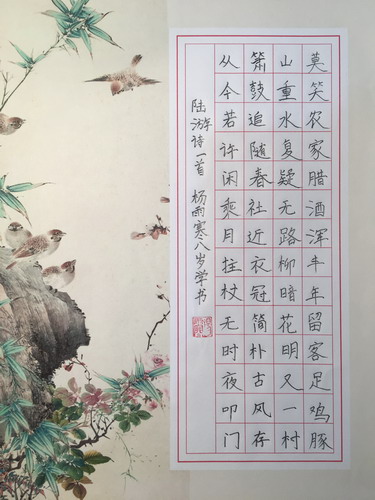 莫笑农家腊酒浑丰年留客足鸡豚
山重水复疑无路柳暗花明又一村
箫鼓追随春社近衣冠简朴古风存
从今若许闲乘月拄杖无时夜叩门
陆游诗一首 杨雨寒八岁学书